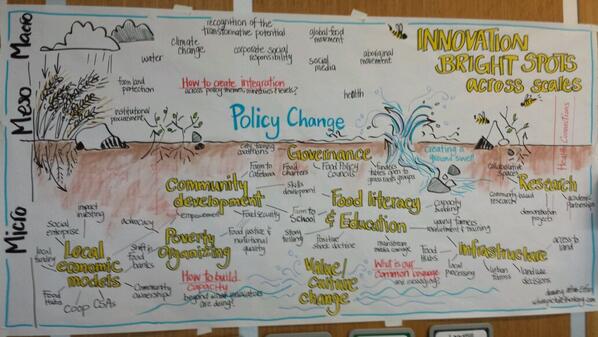 Macro
Meso
Micro
INNOVATION
BRIGHT SPOTS
across scales
recognition of the
transformative potential
global food
movement
climate
change
water
corporate social
responsibility
social
media
aboriginal
movement
farm land
protection
How to create integration
across policy themes, ministries & levels?
health
institutional
procurement
Policy Change
creating a
ground swell
Governance
Farm to
Cafeteria
Food
Charters
Food Policy
Councils
grass roots groups
collaborative
spaces
Research
community based
research
academic
partnerships
demonstration
projects
Community
development
skills
development
empowerment
Food security
Farm to
School
Food literacy
& Education
capacity
building
young farmers
recruitment & training
impact
investing
social
enterprise
advocacy
local funding
Local
economic
models
shift in
food
banks
Poverty
organizing
Food justice &
nutritional
quality
strong
testing
Positive
shock doctrine
mainstream
media coverage
Food
Hubs
Infrastructure
access to
land
local
processing
urban
farms
land use
decisions
Food
Hubs
Coop CSAs
Community
ownership!
How to build
capacity
beyond what
are doing!
Value/
culture
change
What is our
Common Language